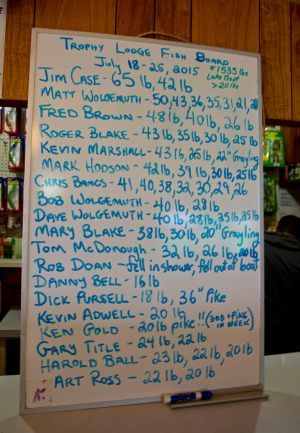 Trophy Lodge Fish Board
July 18-25, 2015
* 1535 lbs
Lake Trout
> 20 lbs
Jim Case - 65 lb, 42 lb
Matt Wolgemuth - 50, 43, 36, 35, 31, 21, 20
Fred Brown - 48 lb, 40 lb, 26 lb
Roger Blake - 43 lb, 35 lb, 30 lb, 25 lb
Kevin Marshall - 43 lb, 25 lb, 22" Grayling
Mark Hodson - 42 lb, 39 lb, 30 lb, 25 lb
Chris Bangs - 41, 40, 38, 32, 30, 29, 26
Bob Wolgemuth - 40 lb, 28 lb
Dave Wolgemuth - 40 lb, 28 lb, 25 lb, 25 lb
Mary Blake - 38 lb, 30 lb, 20" Grayling
Tom McDonough - 32 lb, 26 lb, 20 lb
Rob Doan - fell in shower, fell out of boat
Danny Bell - 16 lb
Dick Pursell - 18 lb, 36" Pike
Kevin Adwell - 20 lb
Ken Gold - 20 lb pike!! (300 # Pike in week)
Gary Title - 24 lb, 22 lb
Harold Ball - 23 lb, 22 lb, 20 lb
Art Ross - 22 lb, 20 lb